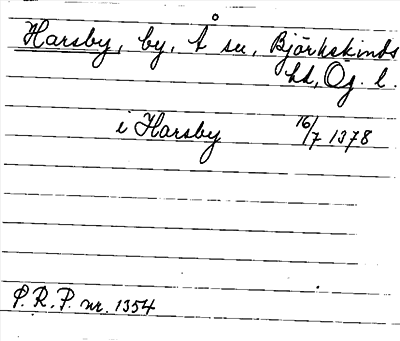 Harsby, by, Å sn, Björkekinds
hd, Ög. l.
i Harsby 16/7 1378
P. R. P. nr. 1354